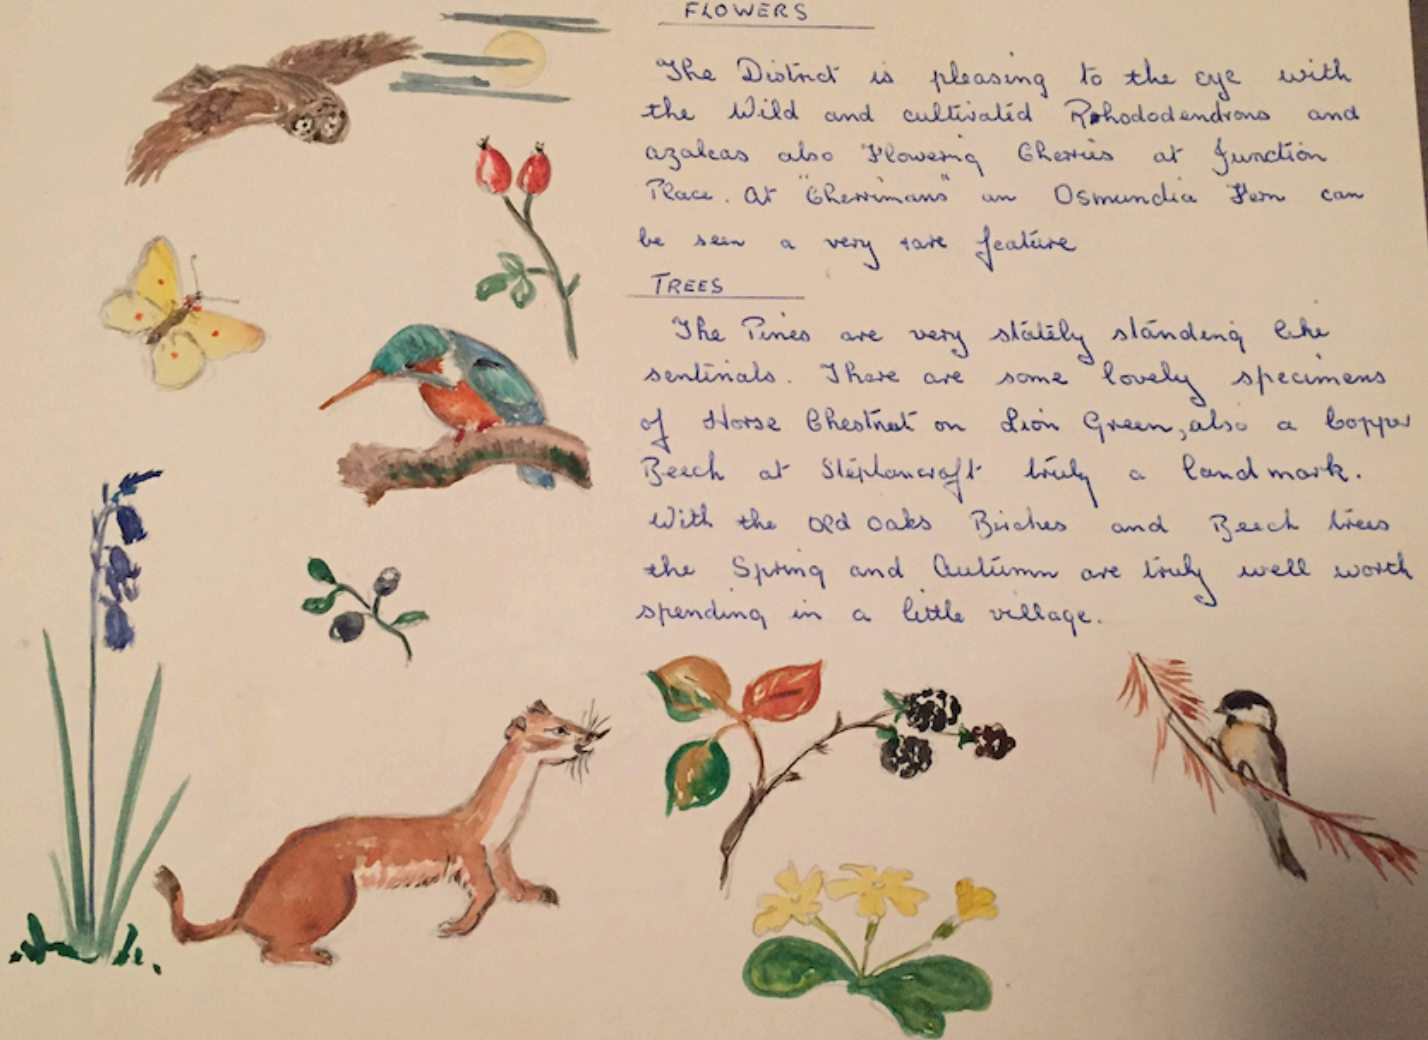 FLOWERS
The District is pleasing to the eye with
the Wild and cultivated Rhododendrons and
azaleas also Flowering Cherries at Junction
Place. At "Cherrimans" an Osmundia Fern can
be seen a very rare feature
TREES
The Pines are very stately standing like
sentinals. There are some lovely specimens
of Horse Chestnut on Lion Green, also a Copper
Beech at Stephancroft truly a landmark.
With the old oaks Birches and Beech trees
the Spring and Autumn are truly well worth
spending in a little village.